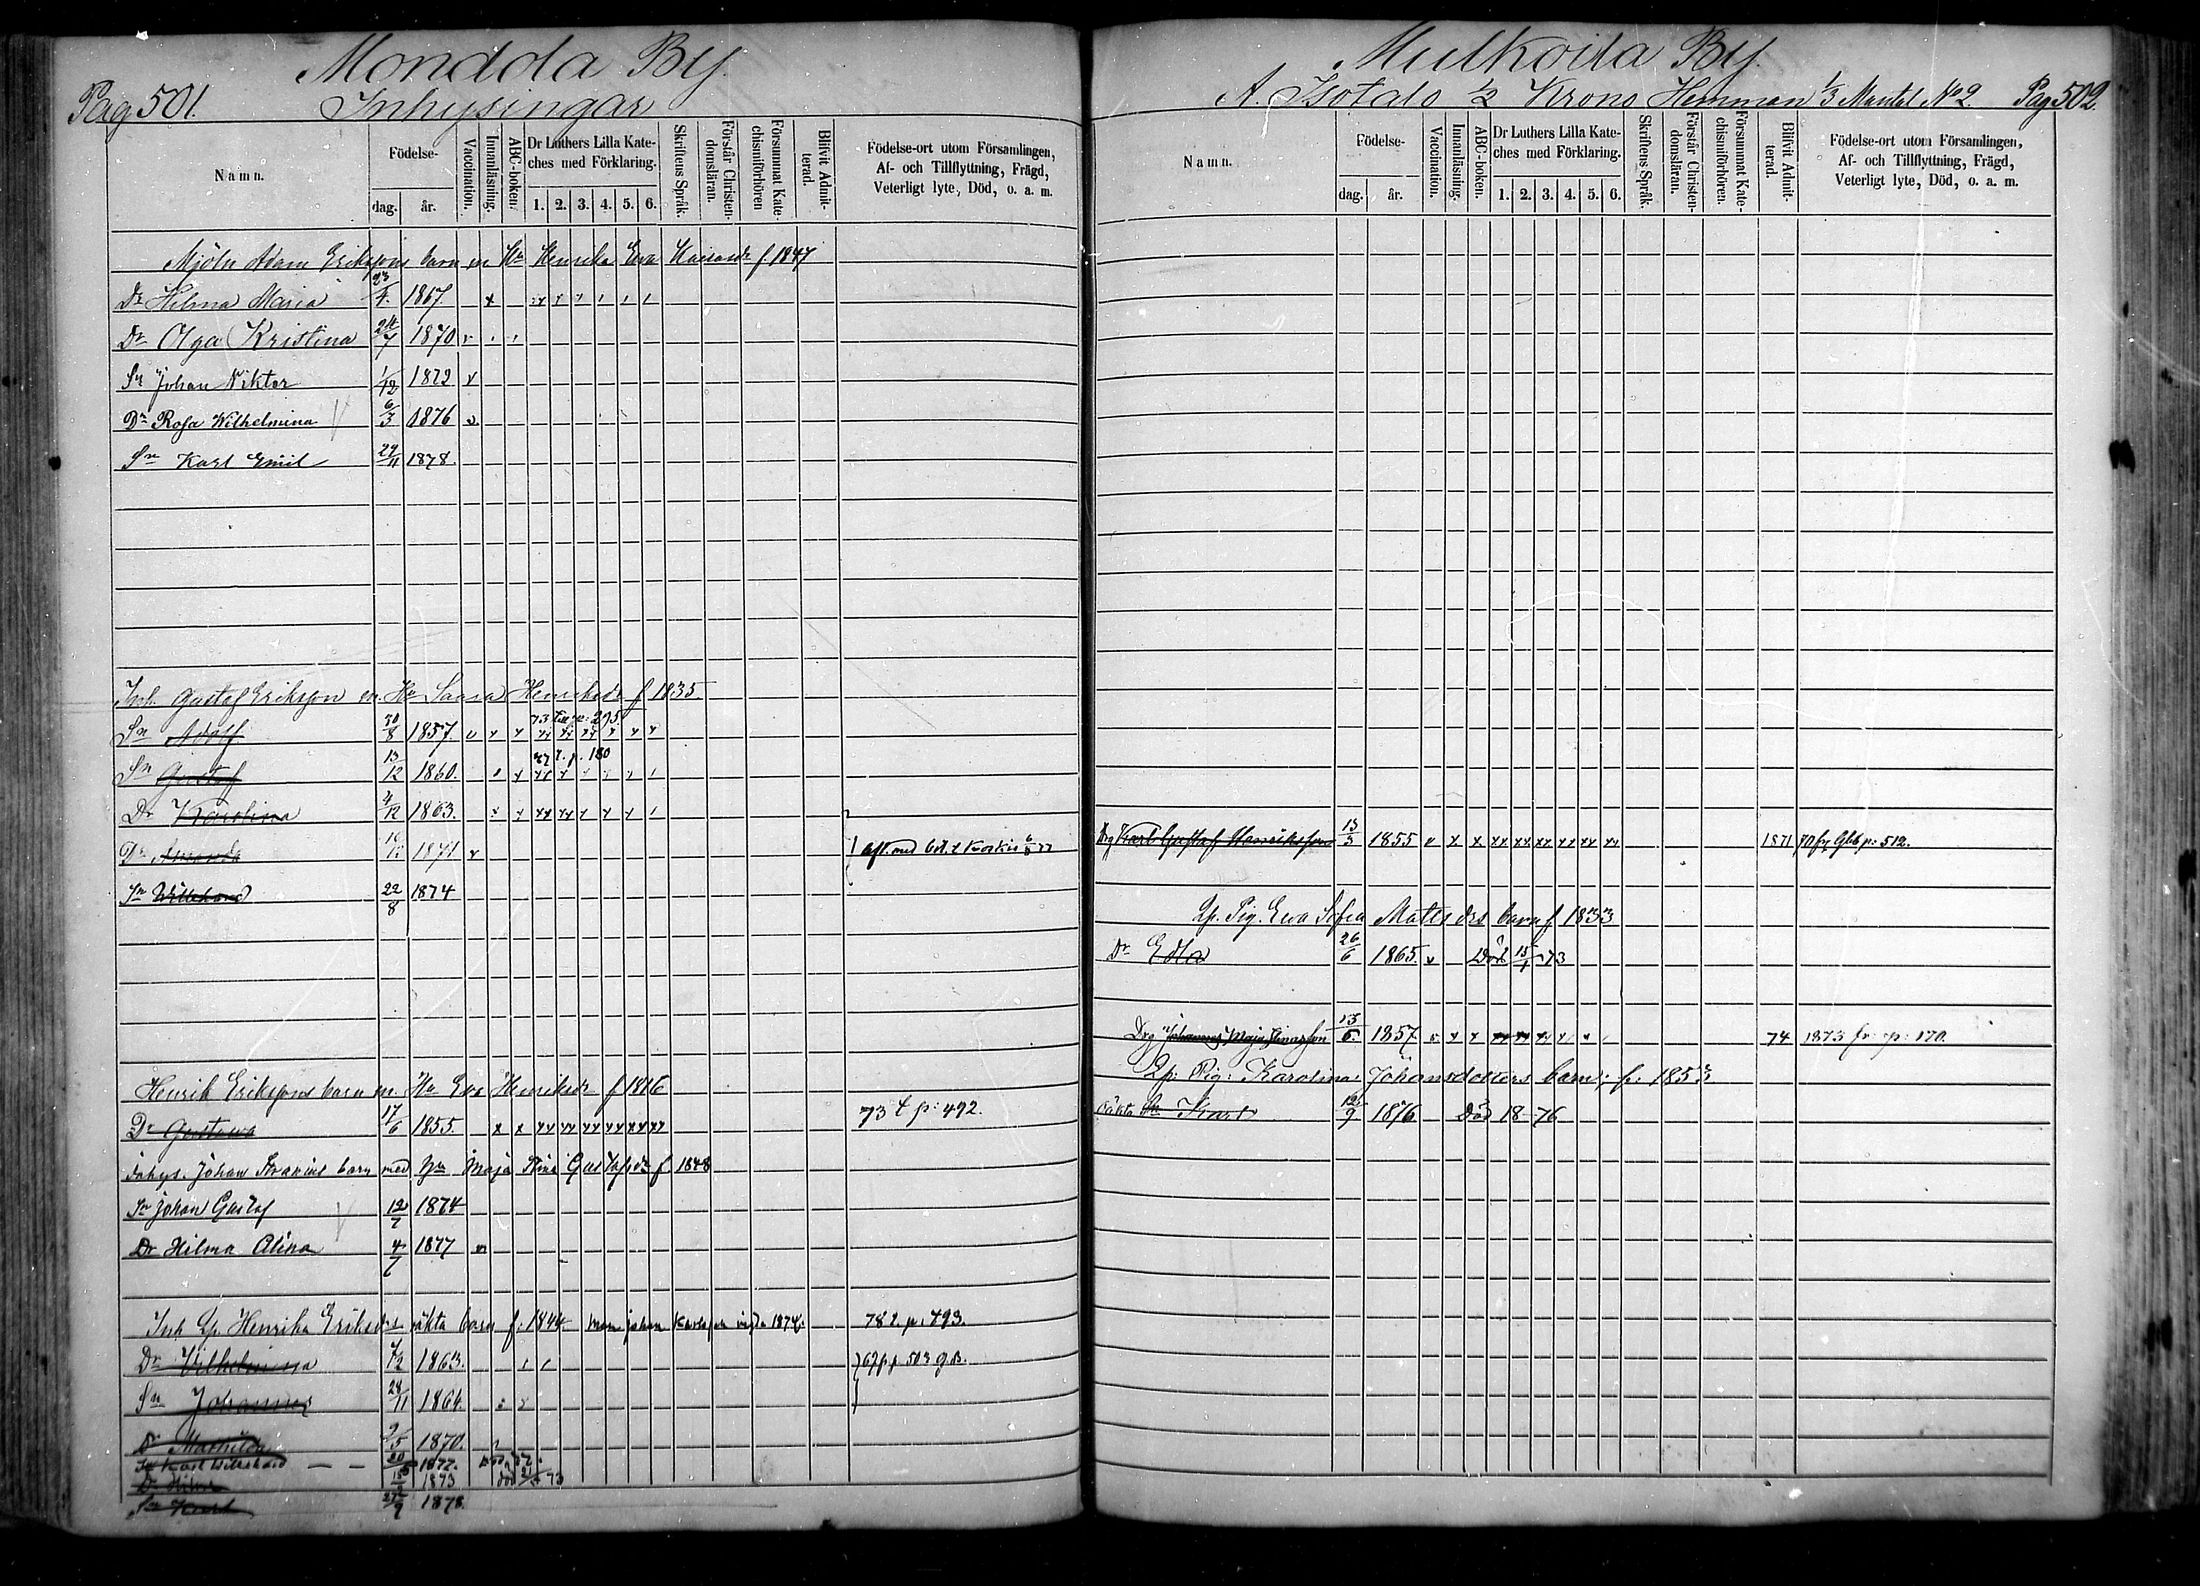 Mondola By.
Pag 501.
Inhysingar
Namn.
Födelse-
dag.
år.
Vaccination.
Innanläsning.
ABC-boken.
Dr Luthers Lilla Kate-
ches med Förklaring.
1. 2. 3. 4. 5. 6.
Skriftens Språk.
Förstår Christen-
domsläran.
Försummat Kate-
chismiförhören
Blifvit Admit-
terad.
Födelse-ort utom Församlingen,
Af- och Tillflyttning, Frägd,
Veterligt lyte, Död, o. a. m.
Mjöln Adam Eriksons barn m Hu Henrika Eva f 1847
Dr Hilma Maria 23/4 1867.
Dr Olga Kristina 24/7 1870
Sn Johan Viktor 1/12 1872
Dr Rosa Wilhelmina 6/3 1876
Sn Karl Emil 29/11 1878.
Inh. Gustaf Erikson m. Hu Saara Henriksdr f 1835.
73 till p: 295.
Sn Adolf 30/8 1857.
77 t. p. 180
Sn Gustaf 13/12 1860.
Dr Karolina 4/12 1863.
Dr Amanda 1871
Sn Willehard 22/8 1874
Henrik Eriksons barn m. Hu Eva Henriksdr f 1816
Dr Gustawa 17/6 1855. 73 t p: 492.
Inhys. Johan barn med Hu Maja Stina Gustafsdr f 1848
Sn Johan Gustaf 12/7 1874
Dr Hilma Alina 4/6 1877
Inh Lp. Henrika Eriksdrs oäkta barn f. 1844 Man Johan Karlsson vigda 1874. 78 t. p. 493.
Dr Wilhelmina 1863. 67 fr p 503 g.B.
Sn Johannes 28/11 1864.
Dr Mathilda 9/5 1870.
Sn Karl Willehard 20 1872.
Dr Hilma 1873 död 21/5 73
Sn Karl 27/9 1878.
Mulkoila By.
A. Isotalo 1/2 Krono Hemman 1/3 Mantal No 2. Pag 502.
Namn.
Födelse-
dag.
år.
Vaccination.
Innanläsning.
ABC-boken.
Dr Luthers Lilla Kate-
ches med Förklaring.
1. 2. 3. 4. 5. 6.
Skriftens Språk.
Förstår Christen-
domsläran.
Försummat Kate-
chismiförhören.
Blifvit Admit-
terad.
Födelse-ort utom Församlingen,
Af- och Tillflyttning, Frägd,
Veterligt lyte, Död, o. a. m.
Drg Karl Gustaf Henriksson 13/3 1855 1871 70 fr Glb p: 512.
Lp. Pig. Ewa Sofia Matts drs barn f 1833
Dr Edla 26/6 1865. Död 15/1 73
Drg Johannes Majastinasson 13/6. 1857. 74 1873 fr p: 170.
Lp: Pig: Karolina Johansdotters barn; f: 1853
oäkta Sn Karl 12/9 1876. Död 18-76